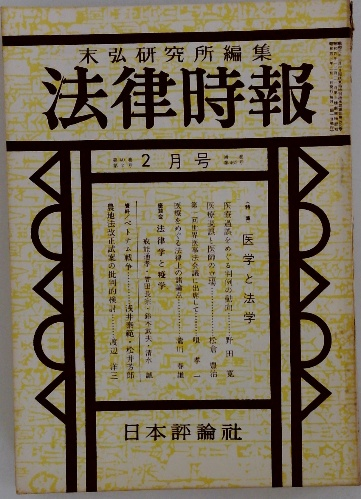 末弘研究所編集
法律時報
2月号
特集 医学と法学
医療過誤をめぐる判例の動向……野田 寛
医療過誤と医師の立場……松倉 豊治
第二回世界医事法会議に出席して……唄 孝一
医療をめぐる法律上の諸論点……滝川 春雄
座談会 法律学と疫学
戒能通孝・曽田長宗・鈴木武夫・清水 誠
資料 ベトナム戦争……浅井基範・松井芳郎
農地法改正試案の批判的検討……渡辺 洋三
日本評論社